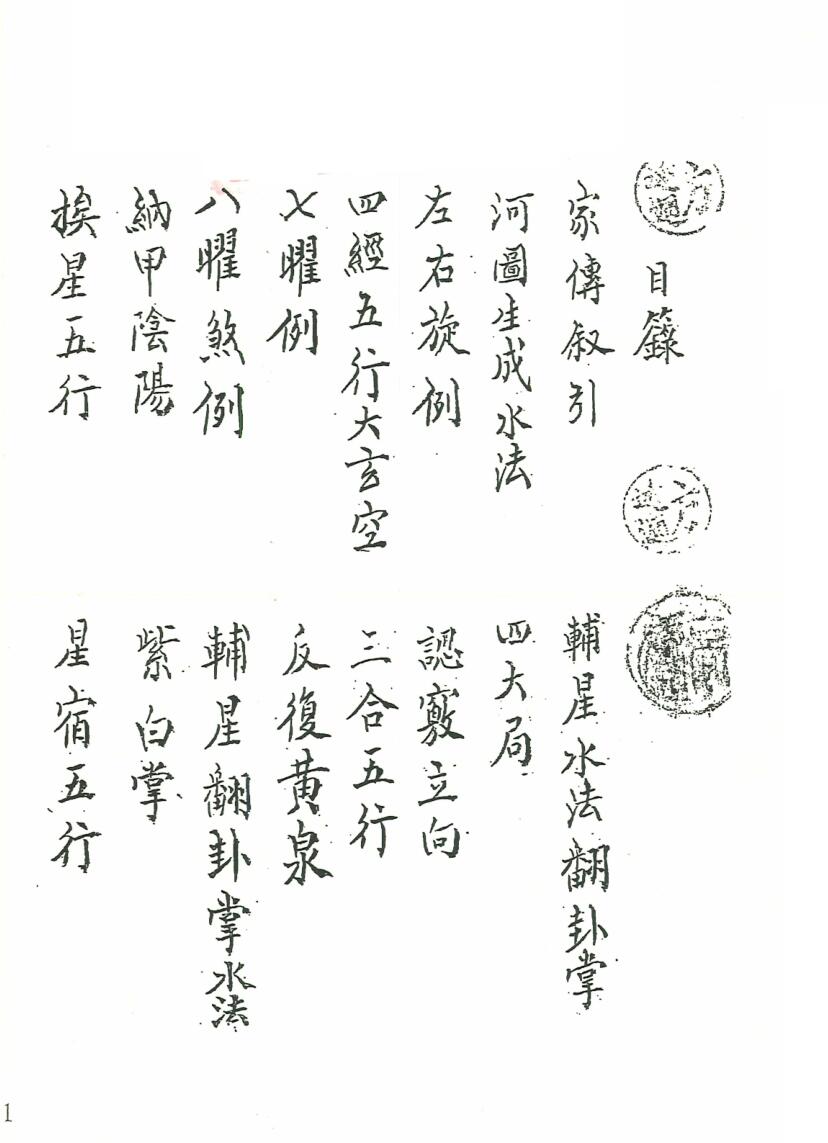 目籙
家傳叙引
輔星水法翻卦掌
河圖生成水法
四大局
左右旋例
認竅立向
四經五行大玄空
三合五行
七曜例
反復黃泉
八曜煞例
輔星翻卦掌水法
納甲陰陽
紫白掌
挨星五行
星宿五行
1